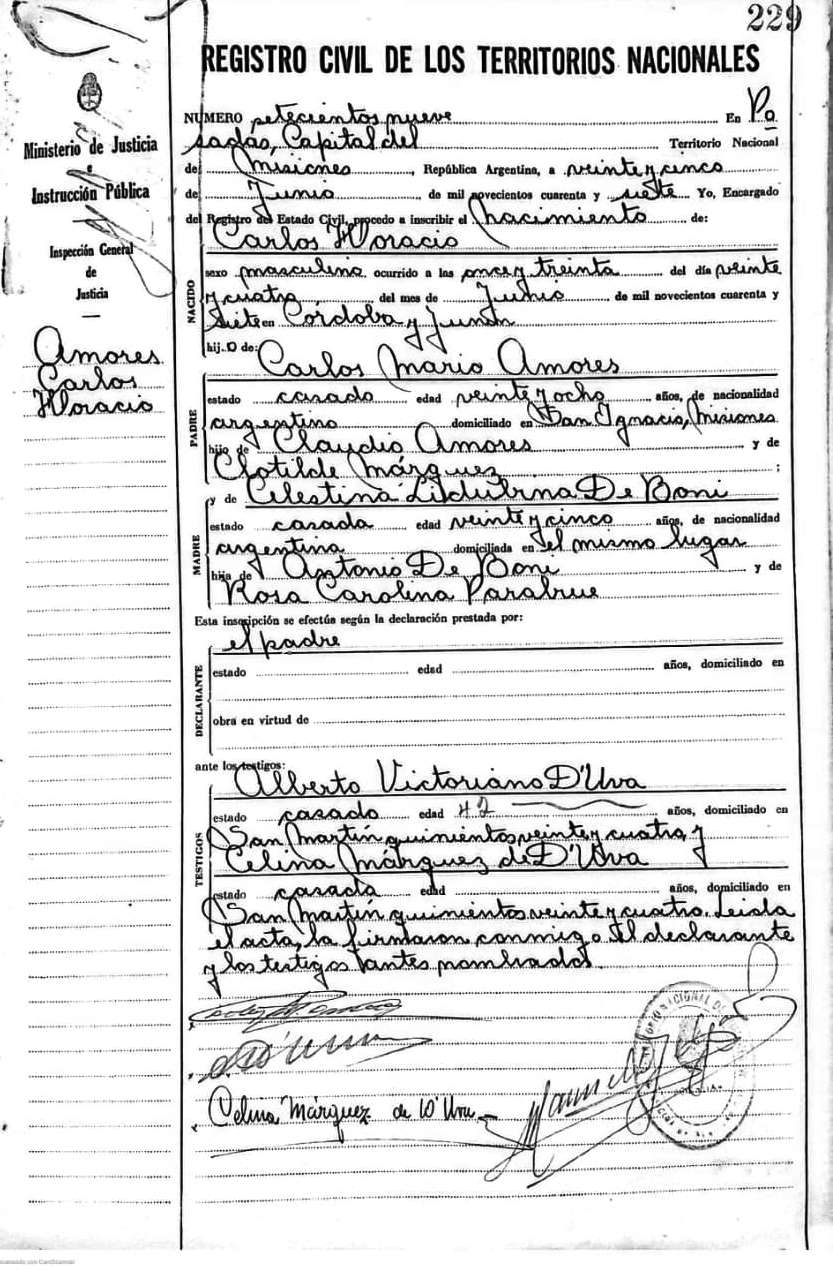 229
REGISTRO CIVIL DE LOS TERRITORIOS NACIONALES
Ministerio de Justicia
e
Instrucción Pública
Inspección General
de
Justicia
Amores
Carlos
Horacio
NUMERO setecientos nueve En Po
sadas, Capital del Territorio Nacional
de Misiones, República Argentina, a veinte y cinco
de Junio de mil novecientos cuarenta y siete Yo, Encargado
del Registro del Estado Civil, procedo a inscribir el nacimiento de:
Carlos Horacio
NACIDO
sexo masculino ocurrido a las once y treinta del día veinte
y cuatro del mes de Junio de mil novecientos cuarenta y
siete en Córdoba y Junín
hij o de:
Carlos Mario Amores
PADRE
estado casado edad veinte y ocho años, de nacionalidad
argentino domiciliado en San Ignacio, Misiones
hijo de Claudio Amores y de
Clotilde Márquez ;
y de Celestina Lidubina De Boni
MADRE
estado casada edad veinte y cinco años, de nacionalidad
argentina domiciliada en el mismo lugar
hija de Antonio De Boni y de
Rosa Carolina
Esta inscripción se efectúa según la declaración prestada por:
el padre
DECLARANTE
estado edad años, domiciliado en
obra en virtud de
ante los testigos:
Alberto Victoriano D'Uva
TESTIGOS
estado casado edad 42 años, domiciliado en
San Martín quinientos veinte y cuatro y
Celina Márquez de D'Uva
estado casada edad años, domiciliado en
San Martín quinientos veinte y cuatro. Leida
el acta, la firmaron conmigo el declarante
y los testigos antes nombrados
Celina Márquez de D'Uva